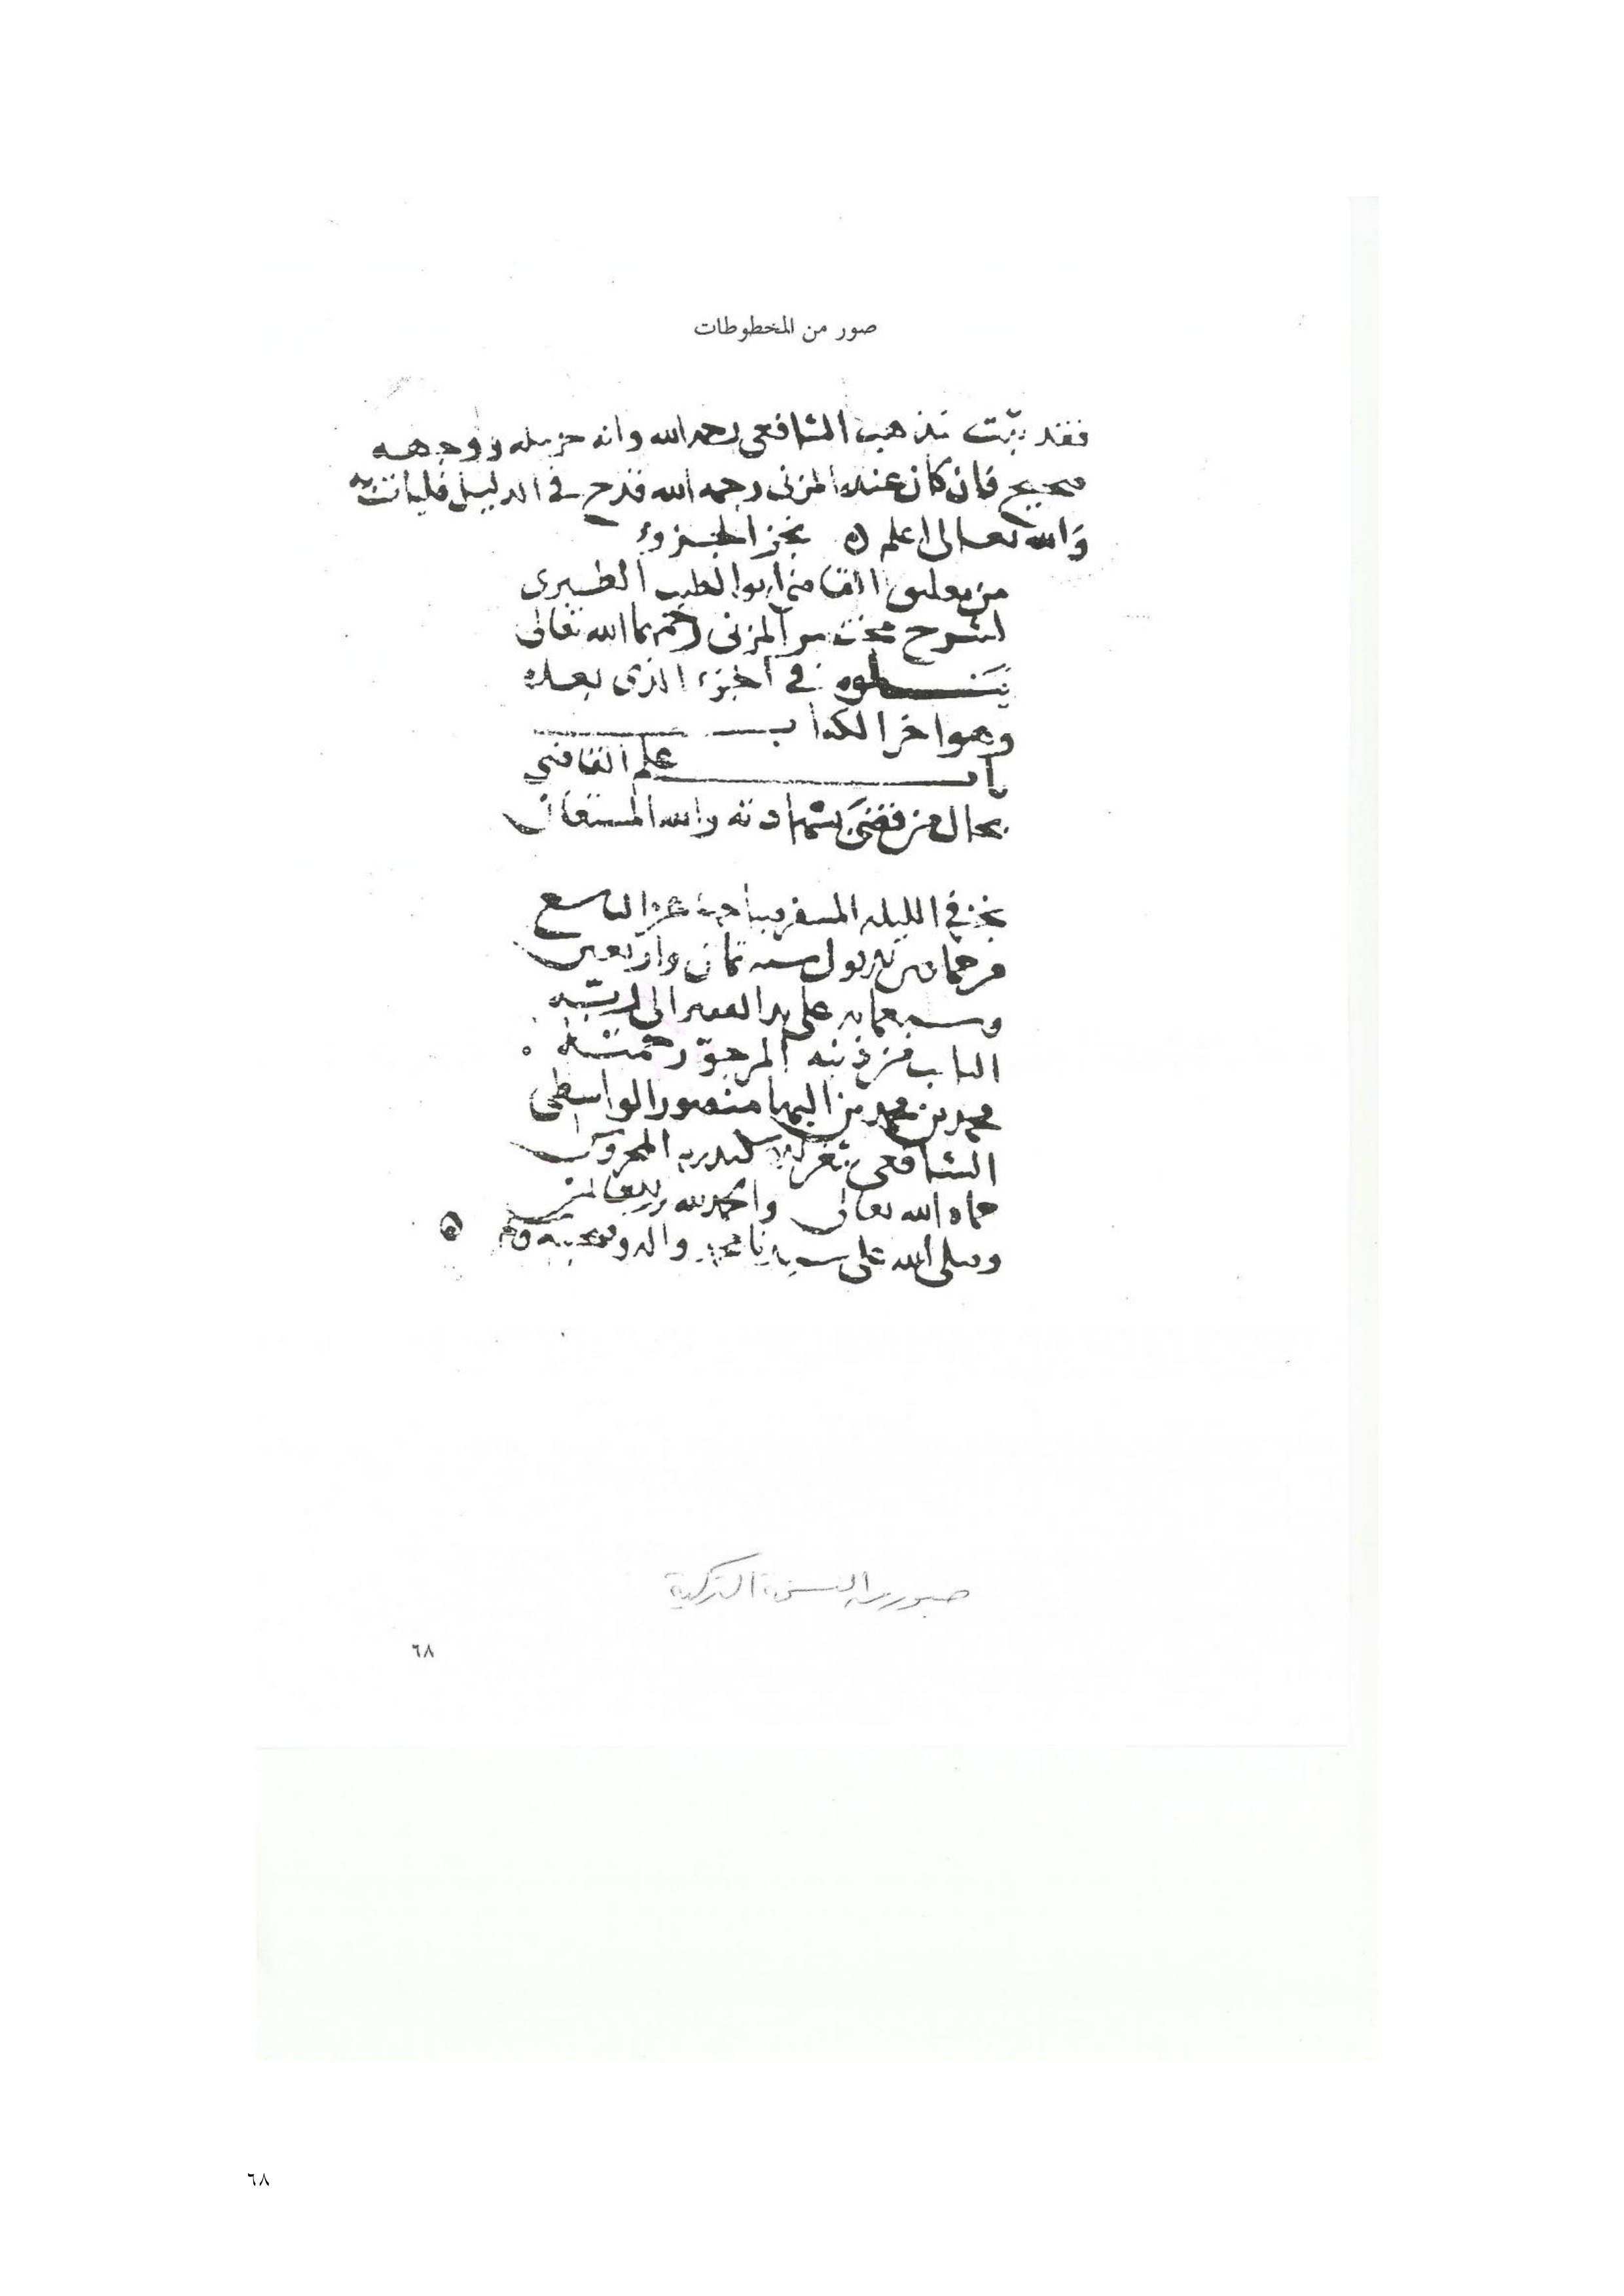 صور من المخطوطات
فقد مذهب الشافعى رحمه الله وانه ووجهه
صحيح فان كان عند المزنى رحمه الله قدح فى الدليل فليات به
والله تعالى اعلم ه نجز الجزوء
من تعليق القاضى ابو الطيب الطبرى
لشرح مختصر المزنى رحمهما الله تعالى
يتلوه فى الجزء الذى بعده
وهو اخر الكتاب
باب علم القاضى
بحال من قضى بشهادته والله المستعان
نجز فى الليله المسفر صباحها عن التاسع
من سنه ثمان واربعين
وسبعمايه على يد الفقير الى ربه
التايب من ذنبه المرجو رحمته
محمد بن محمد بن البها منصور الواسطى
الشافعى بثغر الاسكندريه المحروس
حماه الله تعالى والحمد لله رب العالمين
وصلى الله على سيدنا محمد واله وصحبه
صور من النسخة التركية
٦٨
٦٨